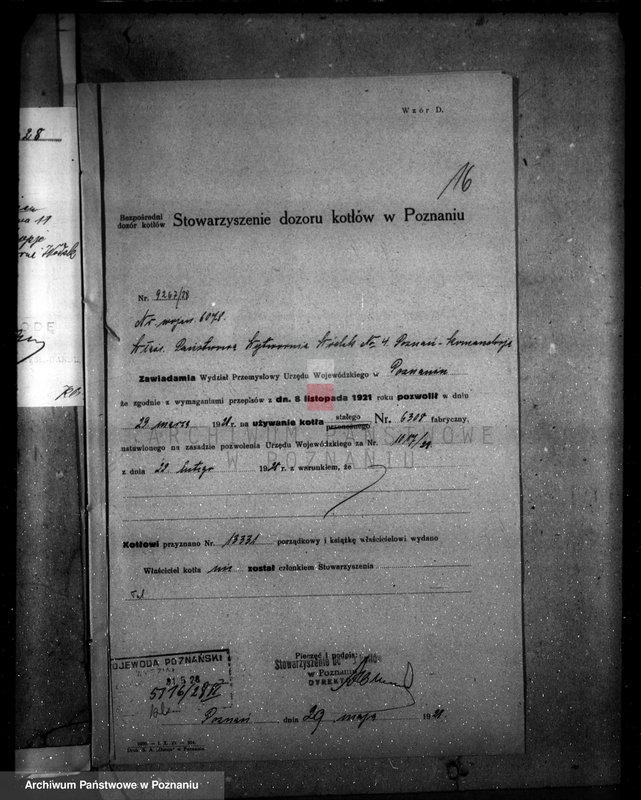 28
Wzór D.
16
Bezpośredni dozór kotłów Stowarzyszenie dozoru kotłów w Poznaniu
Nr. 9267/28
Nr. wojew. 6078.
Właśc. Państwowa Wytwórnia Wódek No 4. Poznań-Komandorja
Zawiadamia Wydział Przemysłowy Urzędu Wojewódzkiego w Poznaniu
że zgodnie z wymaganiami przepisów z dn. 8 listopada 1921 roku pozwolił w dniu
29 marca 1928 r. na używanie kotła stałego przenośnego Nr. 6308 fabryczny,
ustawionego na zasadzie pozwolenia Urzędu Wojewódzkiego za Nr. 1087/28
z dnia 22 lutego 1928 r. z warunkiem, że
ARCHIWUM PAŃSTWOWE
W POZNANIU
Kotłowi przyznano Nr. 13331 porządkowy i książkę właścicielowi wydano
Właściciel kotła nie został członkiem Stowarzyszenia
Pieczęć i podpis:
Stowarzyszenie
w Poznaniu
DYREKTOR
WOJEWODA POZNAŃSKI
31 5 28
5116/28
Poznań dnia 29 maja 1928
Archiwum Państwowe w Poznaniu